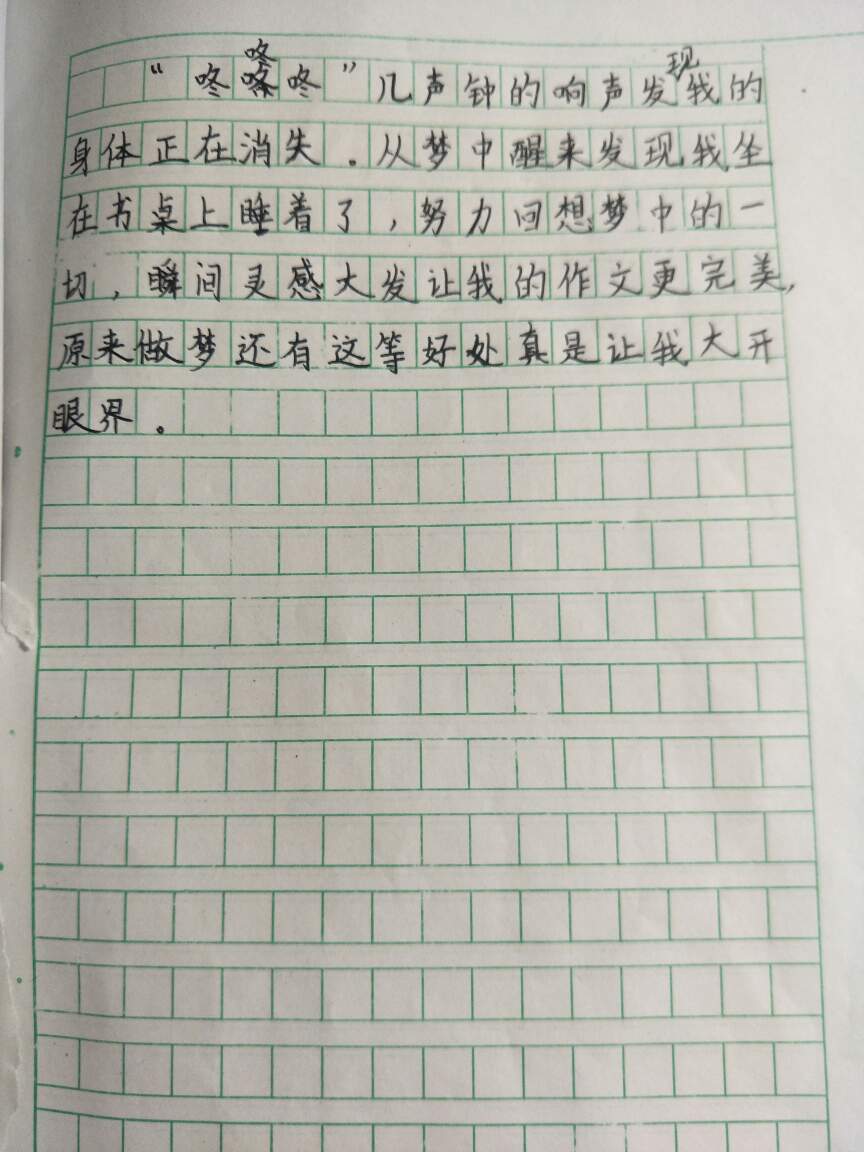 “咚咚咚”几声钟的响声发现我的
身体正在消失.从梦中醒来发现我坐
在书桌上睡着了,努力回想梦中的一
切,瞬间灵感大发让我的作文更完美,
原来做梦还有这等好处真是让我大开
眼界。